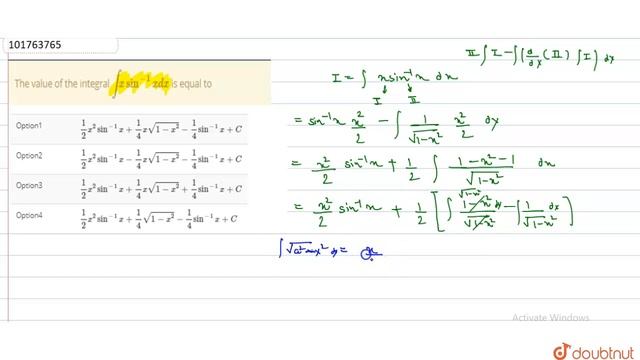 101763765
The value of the integral ∫ x sin⁻¹ xdx is equal to
Option1 1/2 x² sin⁻¹ x + 1/4 x√(1−x²) − 1/4 sin⁻¹ x + C
Option2 1/2 x² sin⁻¹ x − 1/4 x√(1−x²) − 1/4 sin⁻¹ x + C
Option3 1/2 x² sin⁻¹ x + 1/4 x√(1−x²) + 1/4 sin⁻¹ x + C
Option4 1/2 x² sin⁻¹ x + 1/4 √(1−x²) − 1/4 sin⁻¹ x + C
II ∫ I − ∫ (d/dx (II) ∫ I) dx
I = ∫ x sin⁻¹x dx
I II
= sin⁻¹x x²/2 − ∫ 1/√(1−x²) x²/2 dx
= x²/2 sin⁻¹x + 1/2 ∫ (1−x²−1)/√(1−x²) dx
= x²/2 sin⁻¹x + 1/2 [∫ √(1−x²) (1−x²)/√(1−x²) dx − ∫ 1/√(1−x²) dx]
dx = x
Activate Windows
doubtnut